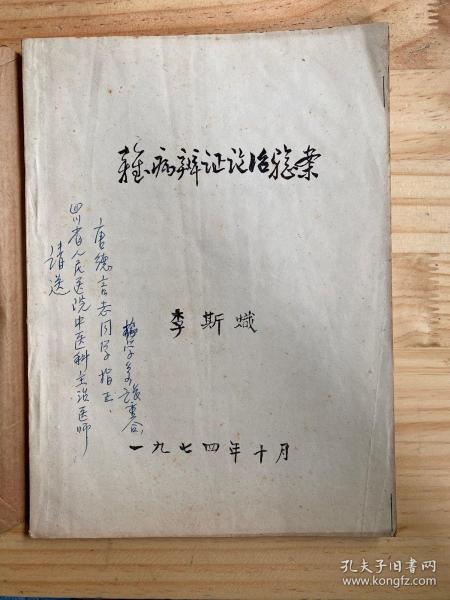 雜病辨证论治验案
李斯熾
一九七四年十月
请送
四川省人民医院中医科主治医师
唐德言老同学指正
孔夫子旧书网
www.kongfz.com